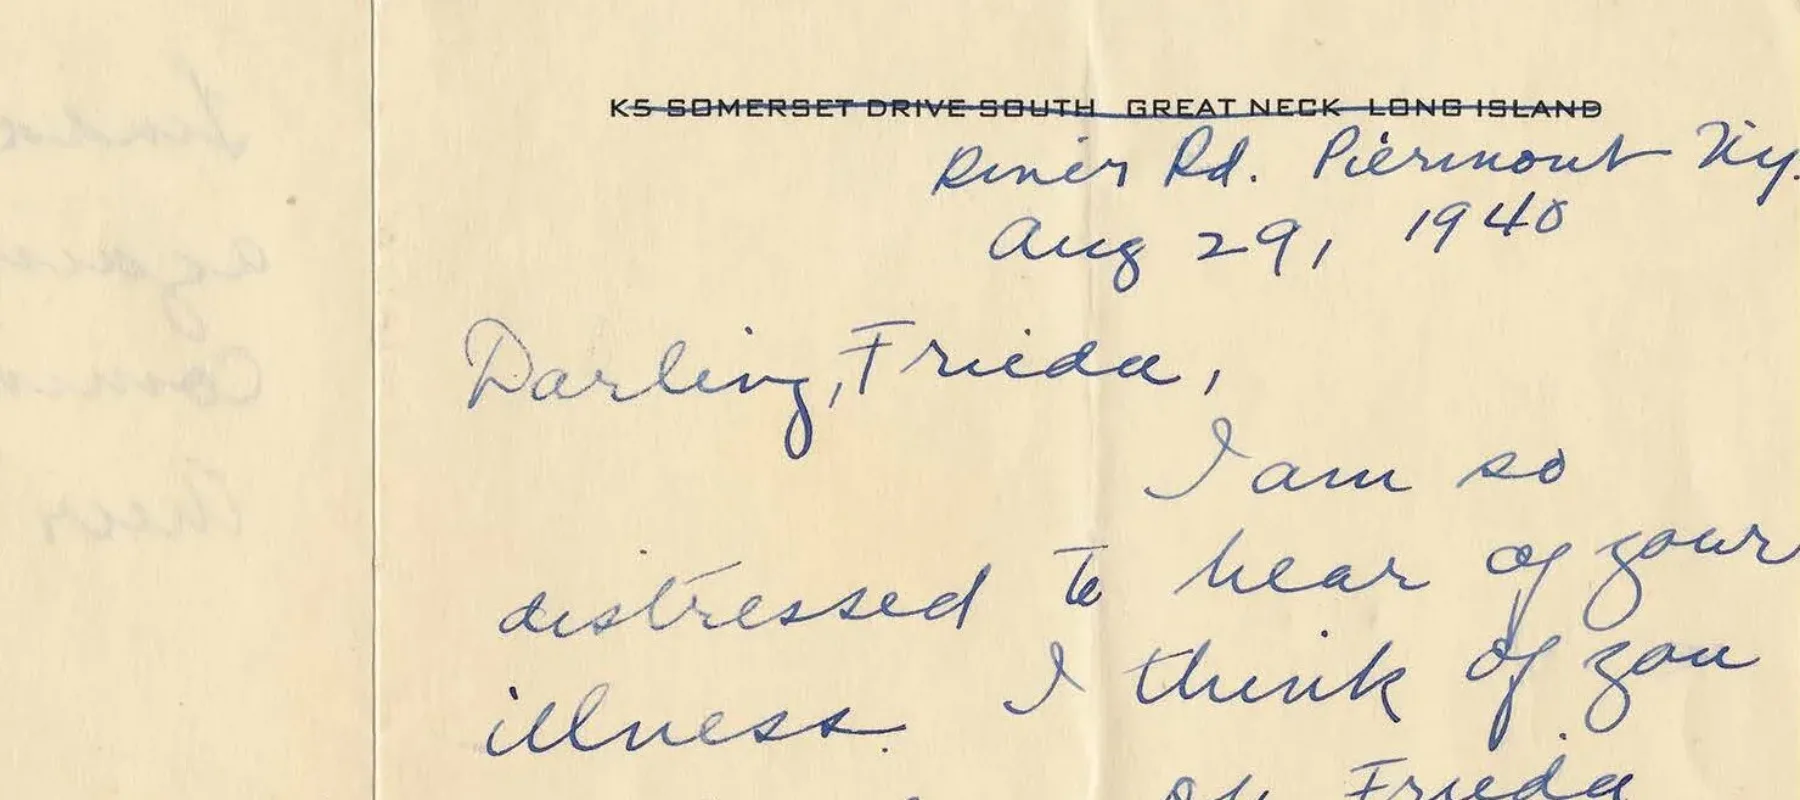 K5 SOMERSET DRIVE SOUTH GREAT NECK LONG ISLAND
River Rd. Piermont Ny.
Aug 29, 1940
Darling, Frieda,
I am so
distressed to hear of your
illness. I think of you
oh Frieda